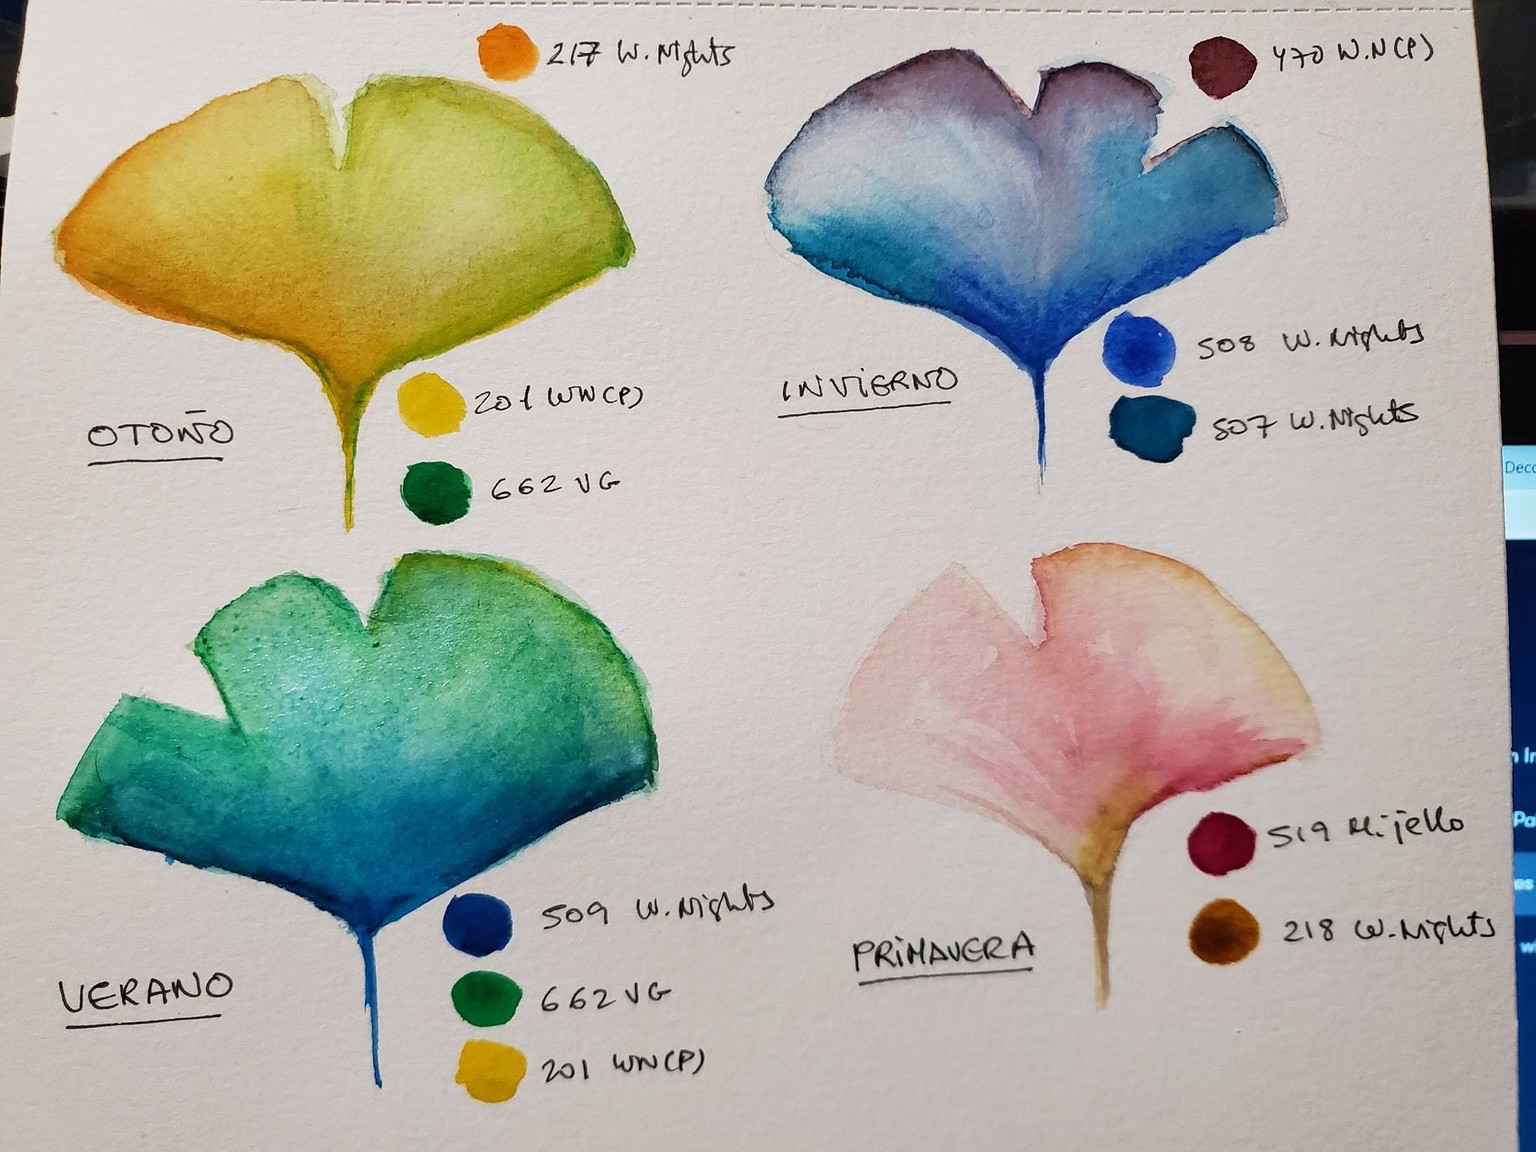 217 W. Nights
201 WN(P)
OTOÑO
662 VG
470 W.N(P)
508 W. Nights
INVIERNO
507 W. Nights
509 W. Nights
VERANO
662 VG
201 WN(P)
519 Mijello
PRIMAVERA
218 W. Nights